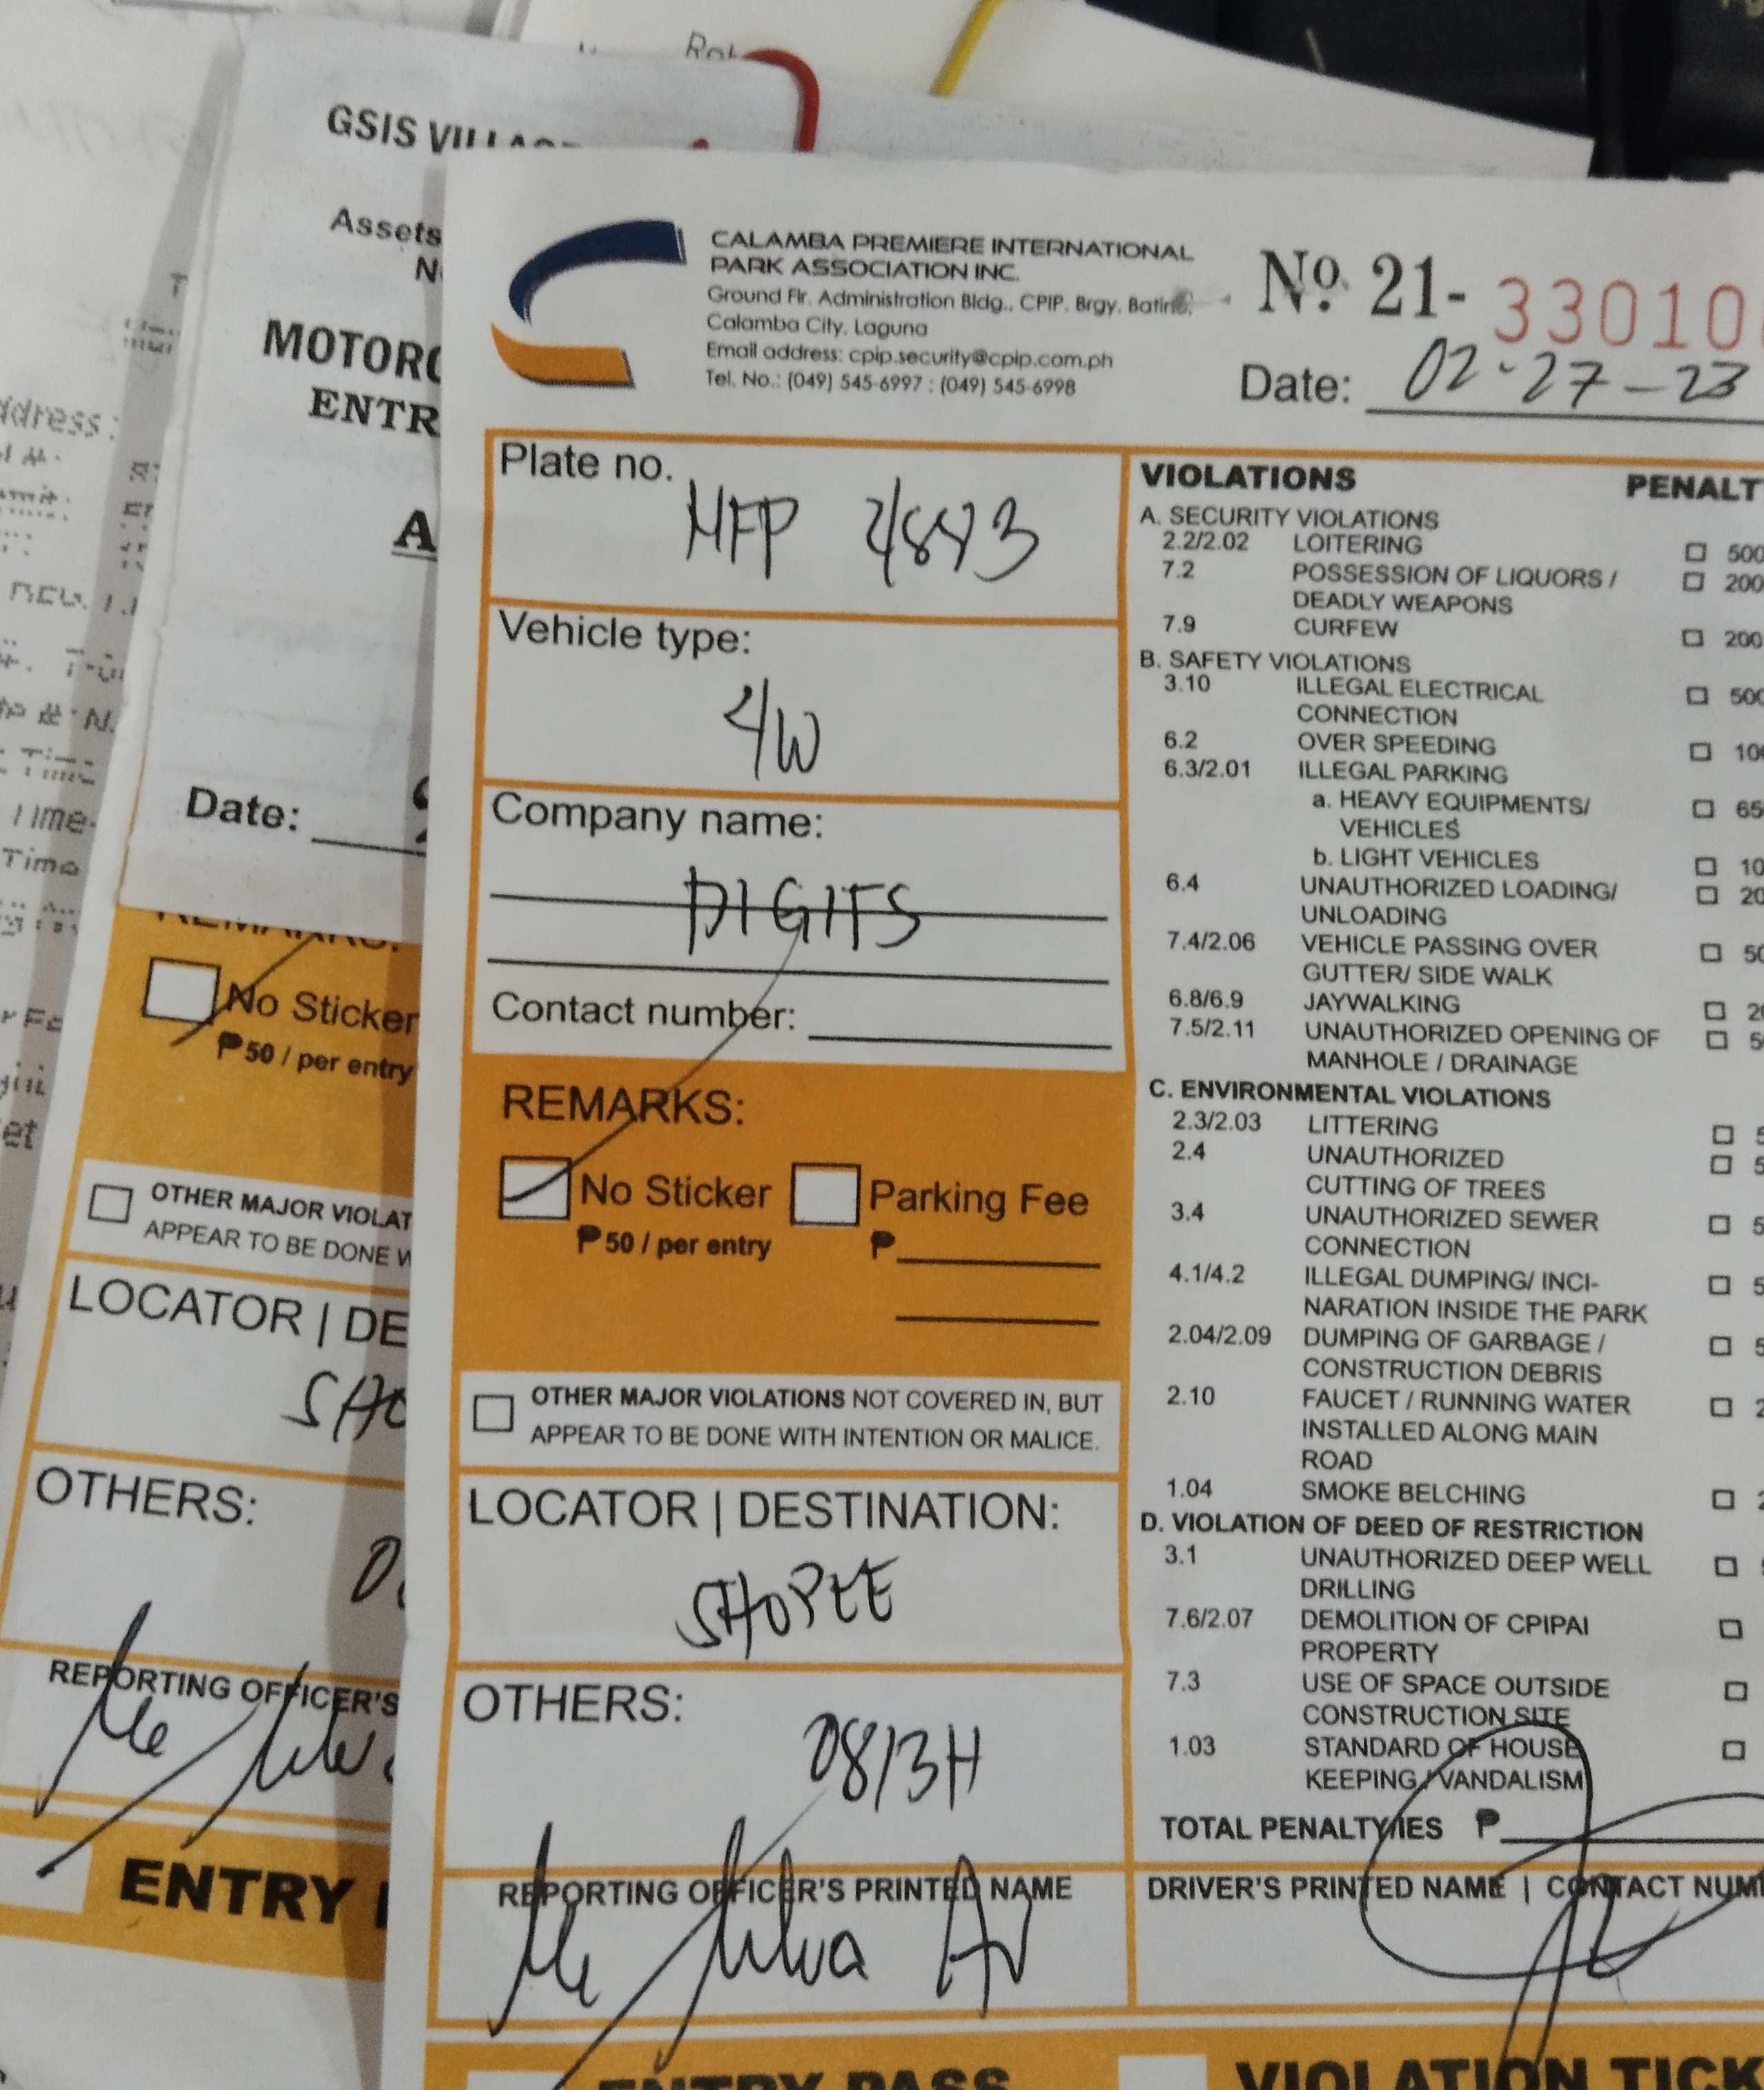 GSIS VILLAG
Assets
MOTORC
ENTR
A
Date:
REMARKS:
No Sticker
₱50 / per entry
OTHER MAJOR VIOLAT
APPEAR TO BE DONE W
LOCATOR | DE
SHO
OTHERS:
REPORTING OFFICER'S
ENTRY
CALAMBA PREMIERE INTERNATIONAL
PARK ASSOCIATION INC.
Ground Flr. Administration Bldg., CPIP. Brgy. Batino,
Calamba City, Laguna
Email address: cpip.security@cpip.com.ph
Tel. No.: (049) 545-6997 : (049) 545-6998
No. 21- 33010
Date: 02-27-23
Plate no.
Vehicle type:
4W
Company name:
DIGITS
Contact number:
REMARKS:
No Sticker
₱50 / per entry
Parking Fee
₱
OTHER MAJOR VIOLATIONS NOT COVERED IN, BUT
APPEAR TO BE DONE WITH INTENTION OR MALICE.
LOCATOR | DESTINATION:
SHOPEE
OTHERS:
0813H
REPORTING OFFICER'S PRINTED NAME
ENTRY PASS
VIOLATIONS PENALT
A. SECURITY VIOLATIONS
2.2/2.02 LOITERING 500
7.2 POSSESSION OF LIQUORS / 200
DEADLY WEAPONS
7.9 CURFEW 200
B. SAFETY VIOLATIONS
3.10 ILLEGAL ELECTRICAL 500
CONNECTION
6.2 OVER SPEEDING 100
6.3/2.01 ILLEGAL PARKING
a. HEAVY EQUIPMENTS/ 65
VEHICLES
b. LIGHT VEHICLES 10
6.4 UNAUTHORIZED LOADING/ 20
UNLOADING
7.4/2.06 VEHICLE PASSING OVER 50
GUTTER/ SIDE WALK
6.8/6.9 JAYWALKING 20
7.5/2.11 UNAUTHORIZED OPENING OF 5
MANHOLE / DRAINAGE
C. ENVIRONMENTAL VIOLATIONS
2.3/2.03 LITTERING 5
2.4 UNAUTHORIZED 5
CUTTING OF TREES
3.4 UNAUTHORIZED SEWER 5
CONNECTION
4.1/4.2 ILLEGAL DUMPING/ INCI- 5
NARATION INSIDE THE PARK
2.04/2.09 DUMPING OF GARBAGE / 5
CONSTRUCTION DEBRIS
2.10 FAUCET / RUNNING WATER 2
INSTALLED ALONG MAIN
ROAD
1.04 SMOKE BELCHING 2
D. VIOLATION OF DEED OF RESTRICTION
3.1 UNAUTHORIZED DEEP WELL
DRILLING
7.6/2.07 DEMOLITION OF CPIPAI
PROPERTY
7.3 USE OF SPACE OUTSIDE
CONSTRUCTION SITE
1.03 STANDARD OF HOUSE
KEEPING / VANDALISM
TOTAL PENALTY/IES ₱
DRIVER'S PRINTED NAME | CONTACT NUM
VIOLATION TICK